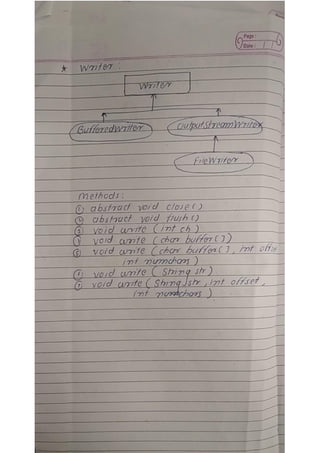 Page:
Date:
* Writer:
Writer
BufferedWriter OutputStreamWriter
FileWriter
Methods:
① abstract void close()
② abstract void flush()
③ void write (int ch)
④ void write (char buffer[])
⑤ void write (char buffer[], int offset
int numchars)
⑥ void write (String str)
⑦ void write (String str, int offset,
int numchars)